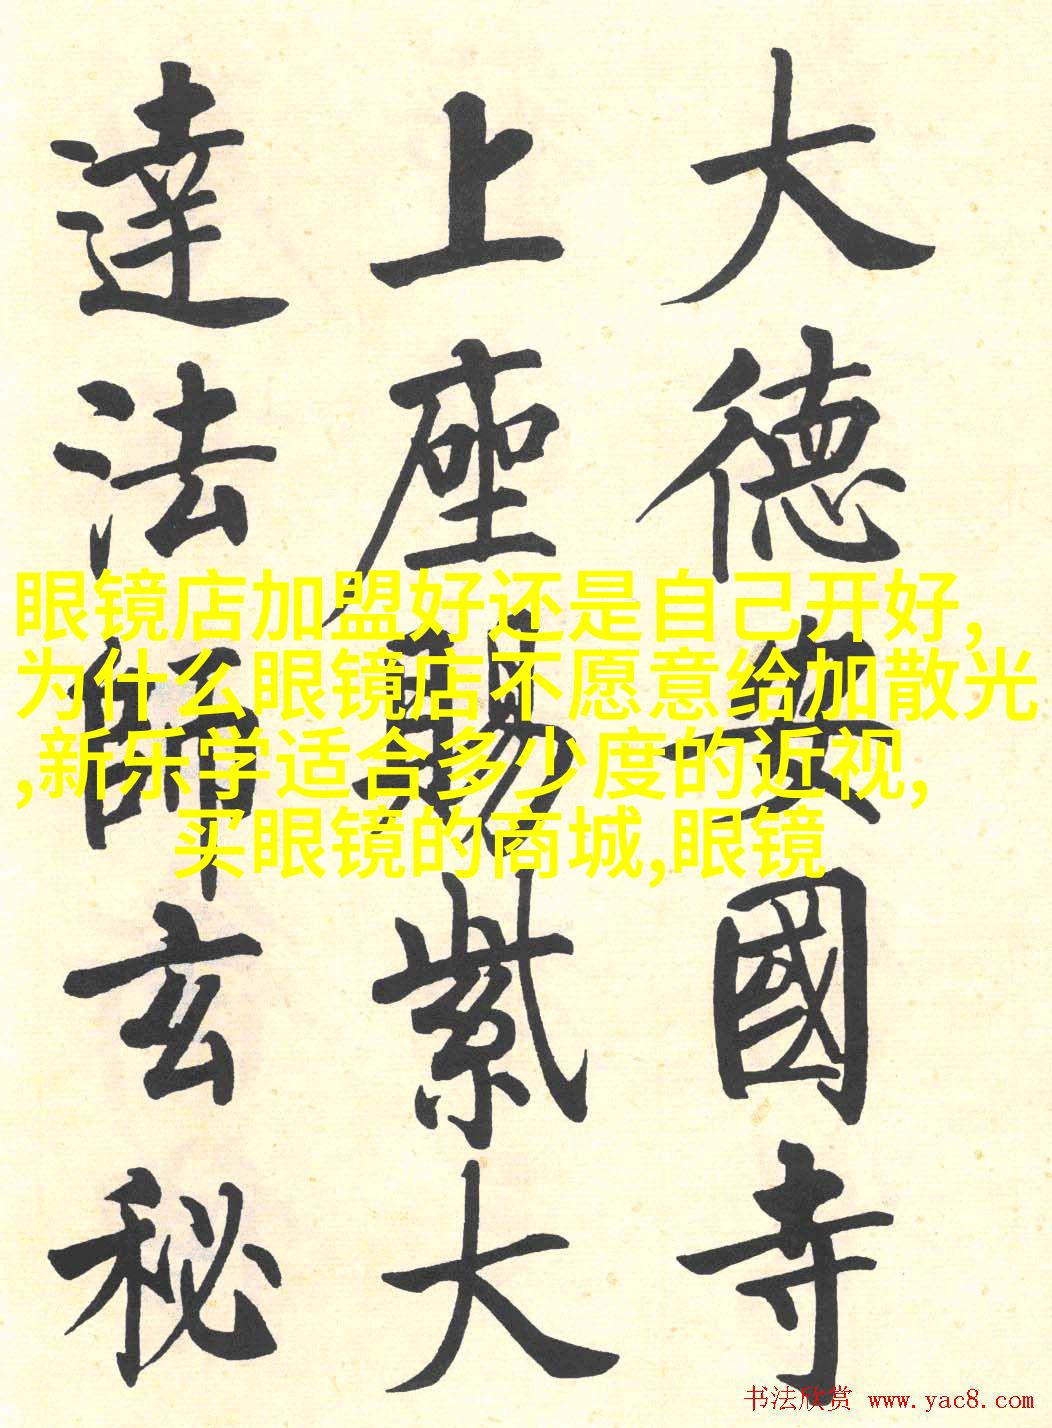 大德安國寺
上座賜紫大
達法師玄秘
眼镜店加盟好还是自己开好,
为什么眼镜店不愿意给加散光
,新乐学适合多少度的近视,
买眼镜的商城,眼镜
书法欣赏 www.yac8.com